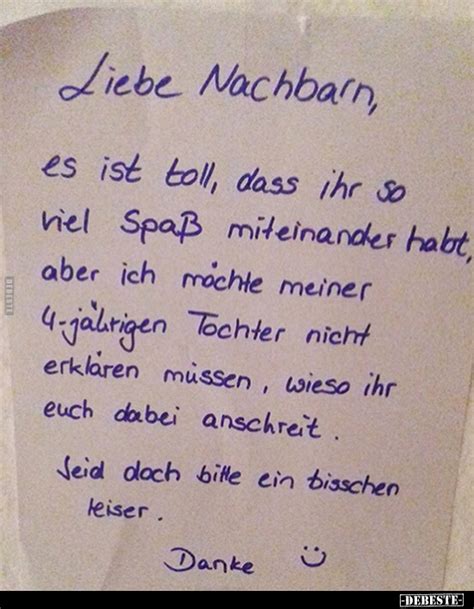 Liebe Nachbarn,
es ist toll, dass ihr so
viel Spaß miteinander habt,
aber ich möchte meiner
4-jährigen Tochter nicht
erklären müssen, wieso ihr
euch dabei anschreit.
Seid doch bitte ein bisschen
leiser.
Danke :)
DEBESTE
-DEBESTE-